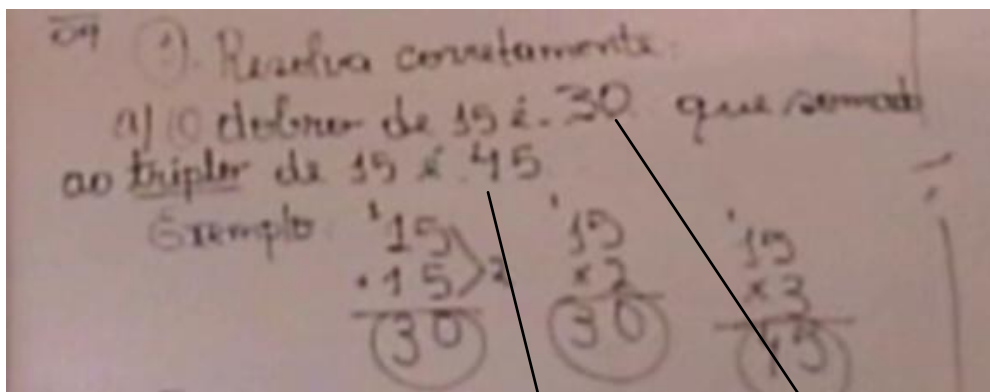 09 1). Resolva corretamente:
a) O dobro de 15 é. 30. que somado
ao triplo de 15 é. 45
Exemplo: ¹15 ¹15 ¹15
+15 2 ×2 ×3
30 30 45